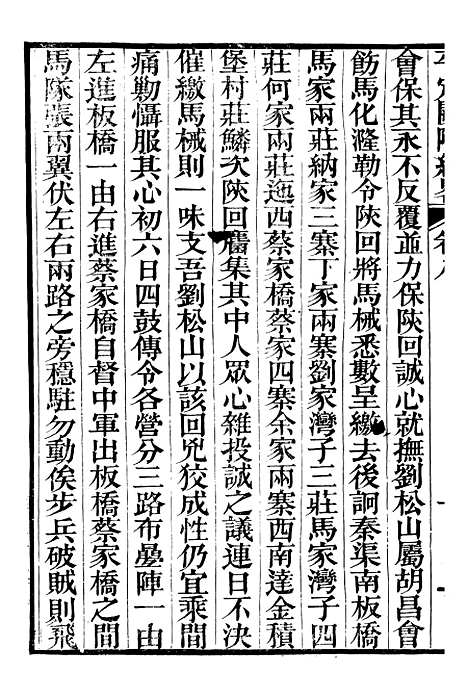 平定關隴紀畧 卷八
會保其永不反覆並力保陝回誠心就撫劉松山屬胡昌會
飭馬化漋勒令陝回將馬械悉數呈繳去後詗秦渠南板橋
馬家兩莊納家三寨丁家兩寨劉家灣子三莊馬家灣子四
莊何家兩莊迤西蔡家橋蔡家四寨余家兩寨西南達金積
堡村莊鱗次陝回麕集其中人眾心雜投誠之議連日不決
催繳馬械則一味支吾劉松山以該回兇狡成性仍宜乘間
痛勦懾服其心初六日四鼓傳令各營分三路布疊陣一由
左進板橋一由右進蔡家橋自督中軍出板橋蔡家橋之間
馬隊張兩翼伏左右兩路之旁穩駐勿動俟步兵破賊則飛